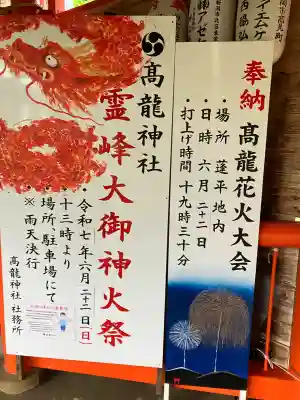 高龍神社
霊峰大御神火祭
・令和七年六月二十二日(日)
・十三時より
・場所、駐車場にて
・※雨天決行
高龍神社 社務所
奉納 高龍花火大会
・場所 蓬平地内
・日時 六月二十二日
・打上げ時間 十九時三十分